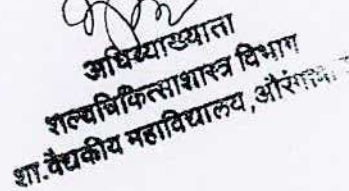 अधिव्याख्याता
शल्यचिकित्साशास्त्र विभाग
शा.वैद्यकीय महाविद्यालय,